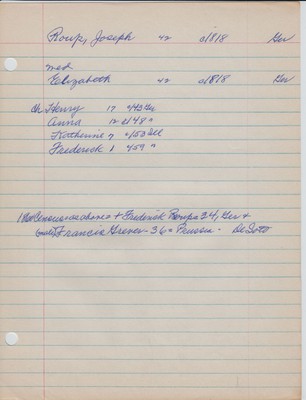 Roup, Joseph 42 c1818 Ger
med
Elizabeth 42 c1818 Ger
ch Henry 17 c/43 Ger
Anna 12 c/48 "
Katherine 7 c/53 Ill
Frederick 1 c/59 "
Census as above + Frederick 34, Ger +
Francis Grever - 36 - Prussia - De Soto